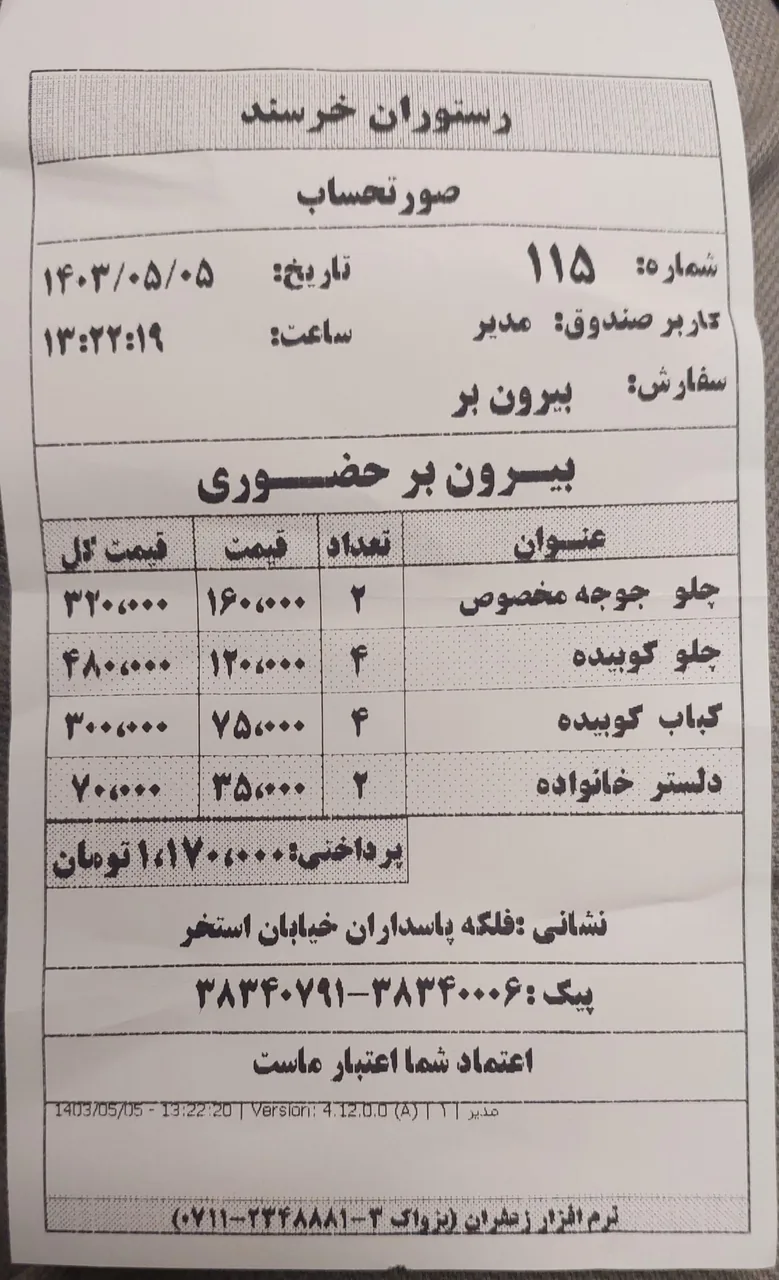 رستوران خرسند
صورتحساب
شماره: ۱۱۵ تاریخ: ۱۴۰۳/۰۵/۰۵
کاربر صندوق: مدیر ساعت: ۱۳:۲۲:۱۹
سفارش: بیرون بر
بیرون بر حضوری
عنوان تعداد قیمت قیمت کل
چلو جوجه مخصوص ۲ ۱۶۰،۰۰۰ ۳۲۰،۰۰۰
چلو کوبیده ۴ ۱۲۰،۰۰۰ ۴۸۰،۰۰۰
کباب کوبیده ۴ ۷۵،۰۰۰ ۳۰۰،۰۰۰
دلستر خانواده ۲ ۳۵،۰۰۰ ۷۰،۰۰۰
پرداختی: ۱،۱۷۰،۰۰۰ تومان
نشانی :فلکه پاسداران خیابان استخر
پیک :۳۸۳۴۰۰۰۶-۳۸۳۴۰۷۹۱
اعتماد شما اعتبار ماست
1403/05/05 - 13:22:20 | Version: 4.12.0.0 (A) | ۱ | مدیر
نرم افزار زعفران (پژواک ۳-۲۳۴۸۸۸۱-۰۷۱۱)